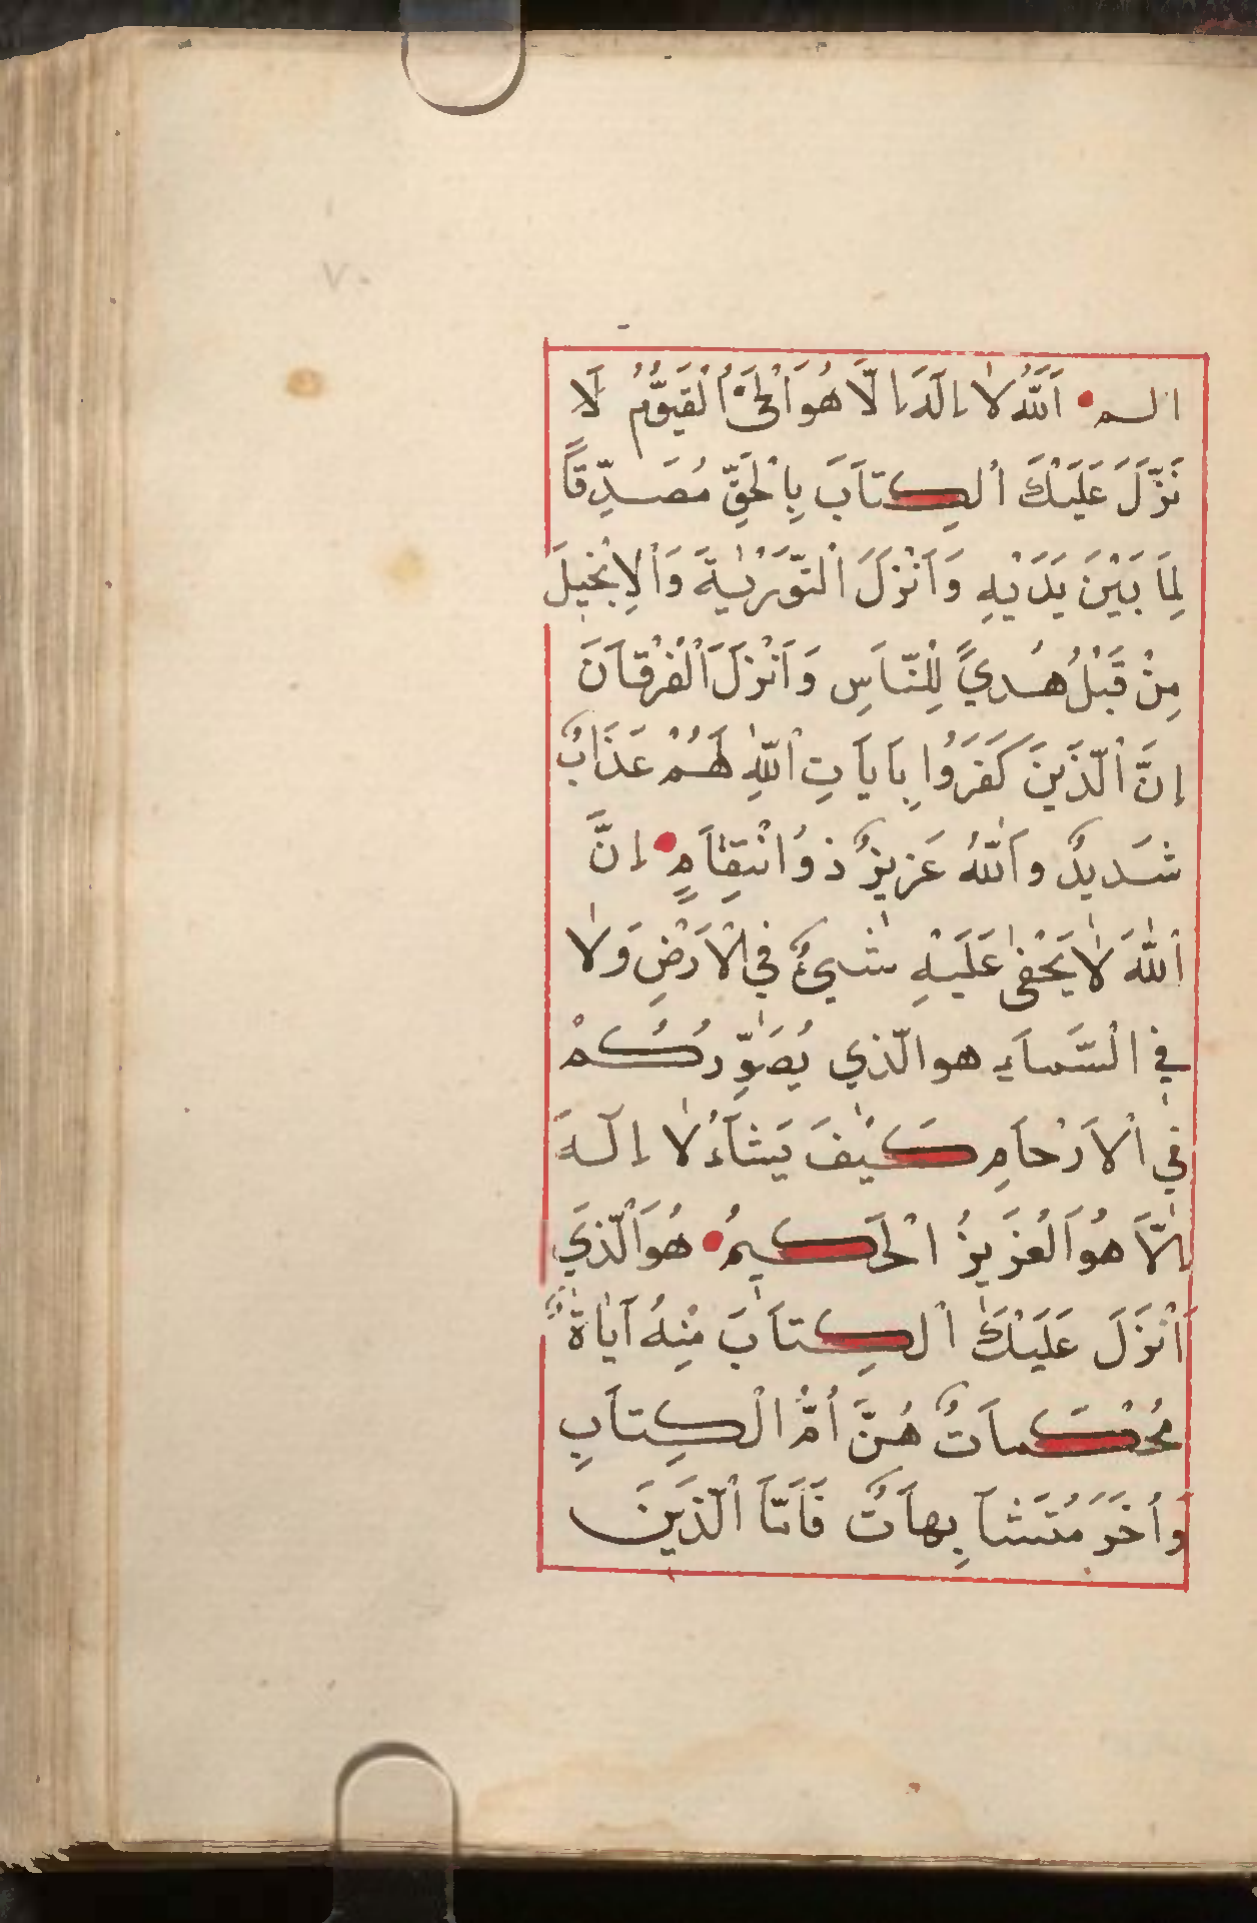 ٧٠
الم اَللّٰهُ لٰا اِلَهَ اِلَّا هُوَ اَلْحَيُّ اُلْقَيُّوْمُ لَا
نَزَّلَ عَلَيْكَ اْلكِتاَبَ بِاْلحَقِّ مُصَدِّقاً
لِمَا بَيْنَ يَدَيْهِ وَاَنْزَلَ اْلتَّوْرٰيةَ وَاْلاِنْجِيلَ
مِنْ قَبْلُ هُديً لِلْنّاَسِ وَاَنْزَلَ اَلْفُرْقاَنَ
إنَّ اْلّذَينَ كَفَرَوُا بِاَياَتِ اْللّٰهِ لَهُمْ عَذَابٌ
شَديدٌ واَللّٰهُ عَزيزٌ ذوُ انْتِقاَمٍ إنَّ
اْللّٰهَ لٰا يَخْفىٰ عَلَيْهِ شَيْئٌ فيِ اْلاَرْضِ وَلٰا
فيِ اْلسَّماَءِ هو الّذي يُصَوِّرُكُمْ
فيِ اْلاَرْحاَمِ كَيْفَ يَشاَءُ لٰا إلَهَ
الَّا هُوَ اَلْعُزَيزُ اْلحَكيمُ هُوَ اَلّذَيَ
اَنْزَلَ عَلَيْكَ اْلكِتاَبَ مْنِهُ آياٰةٌ
مُحْكَماَتٌ هُنَّ اُمُّ اْلكِتاَبِ
وَاُخَرَ مُتَشاَ بِهاَتٌ فَاَمّاَ اْلّذَينَ